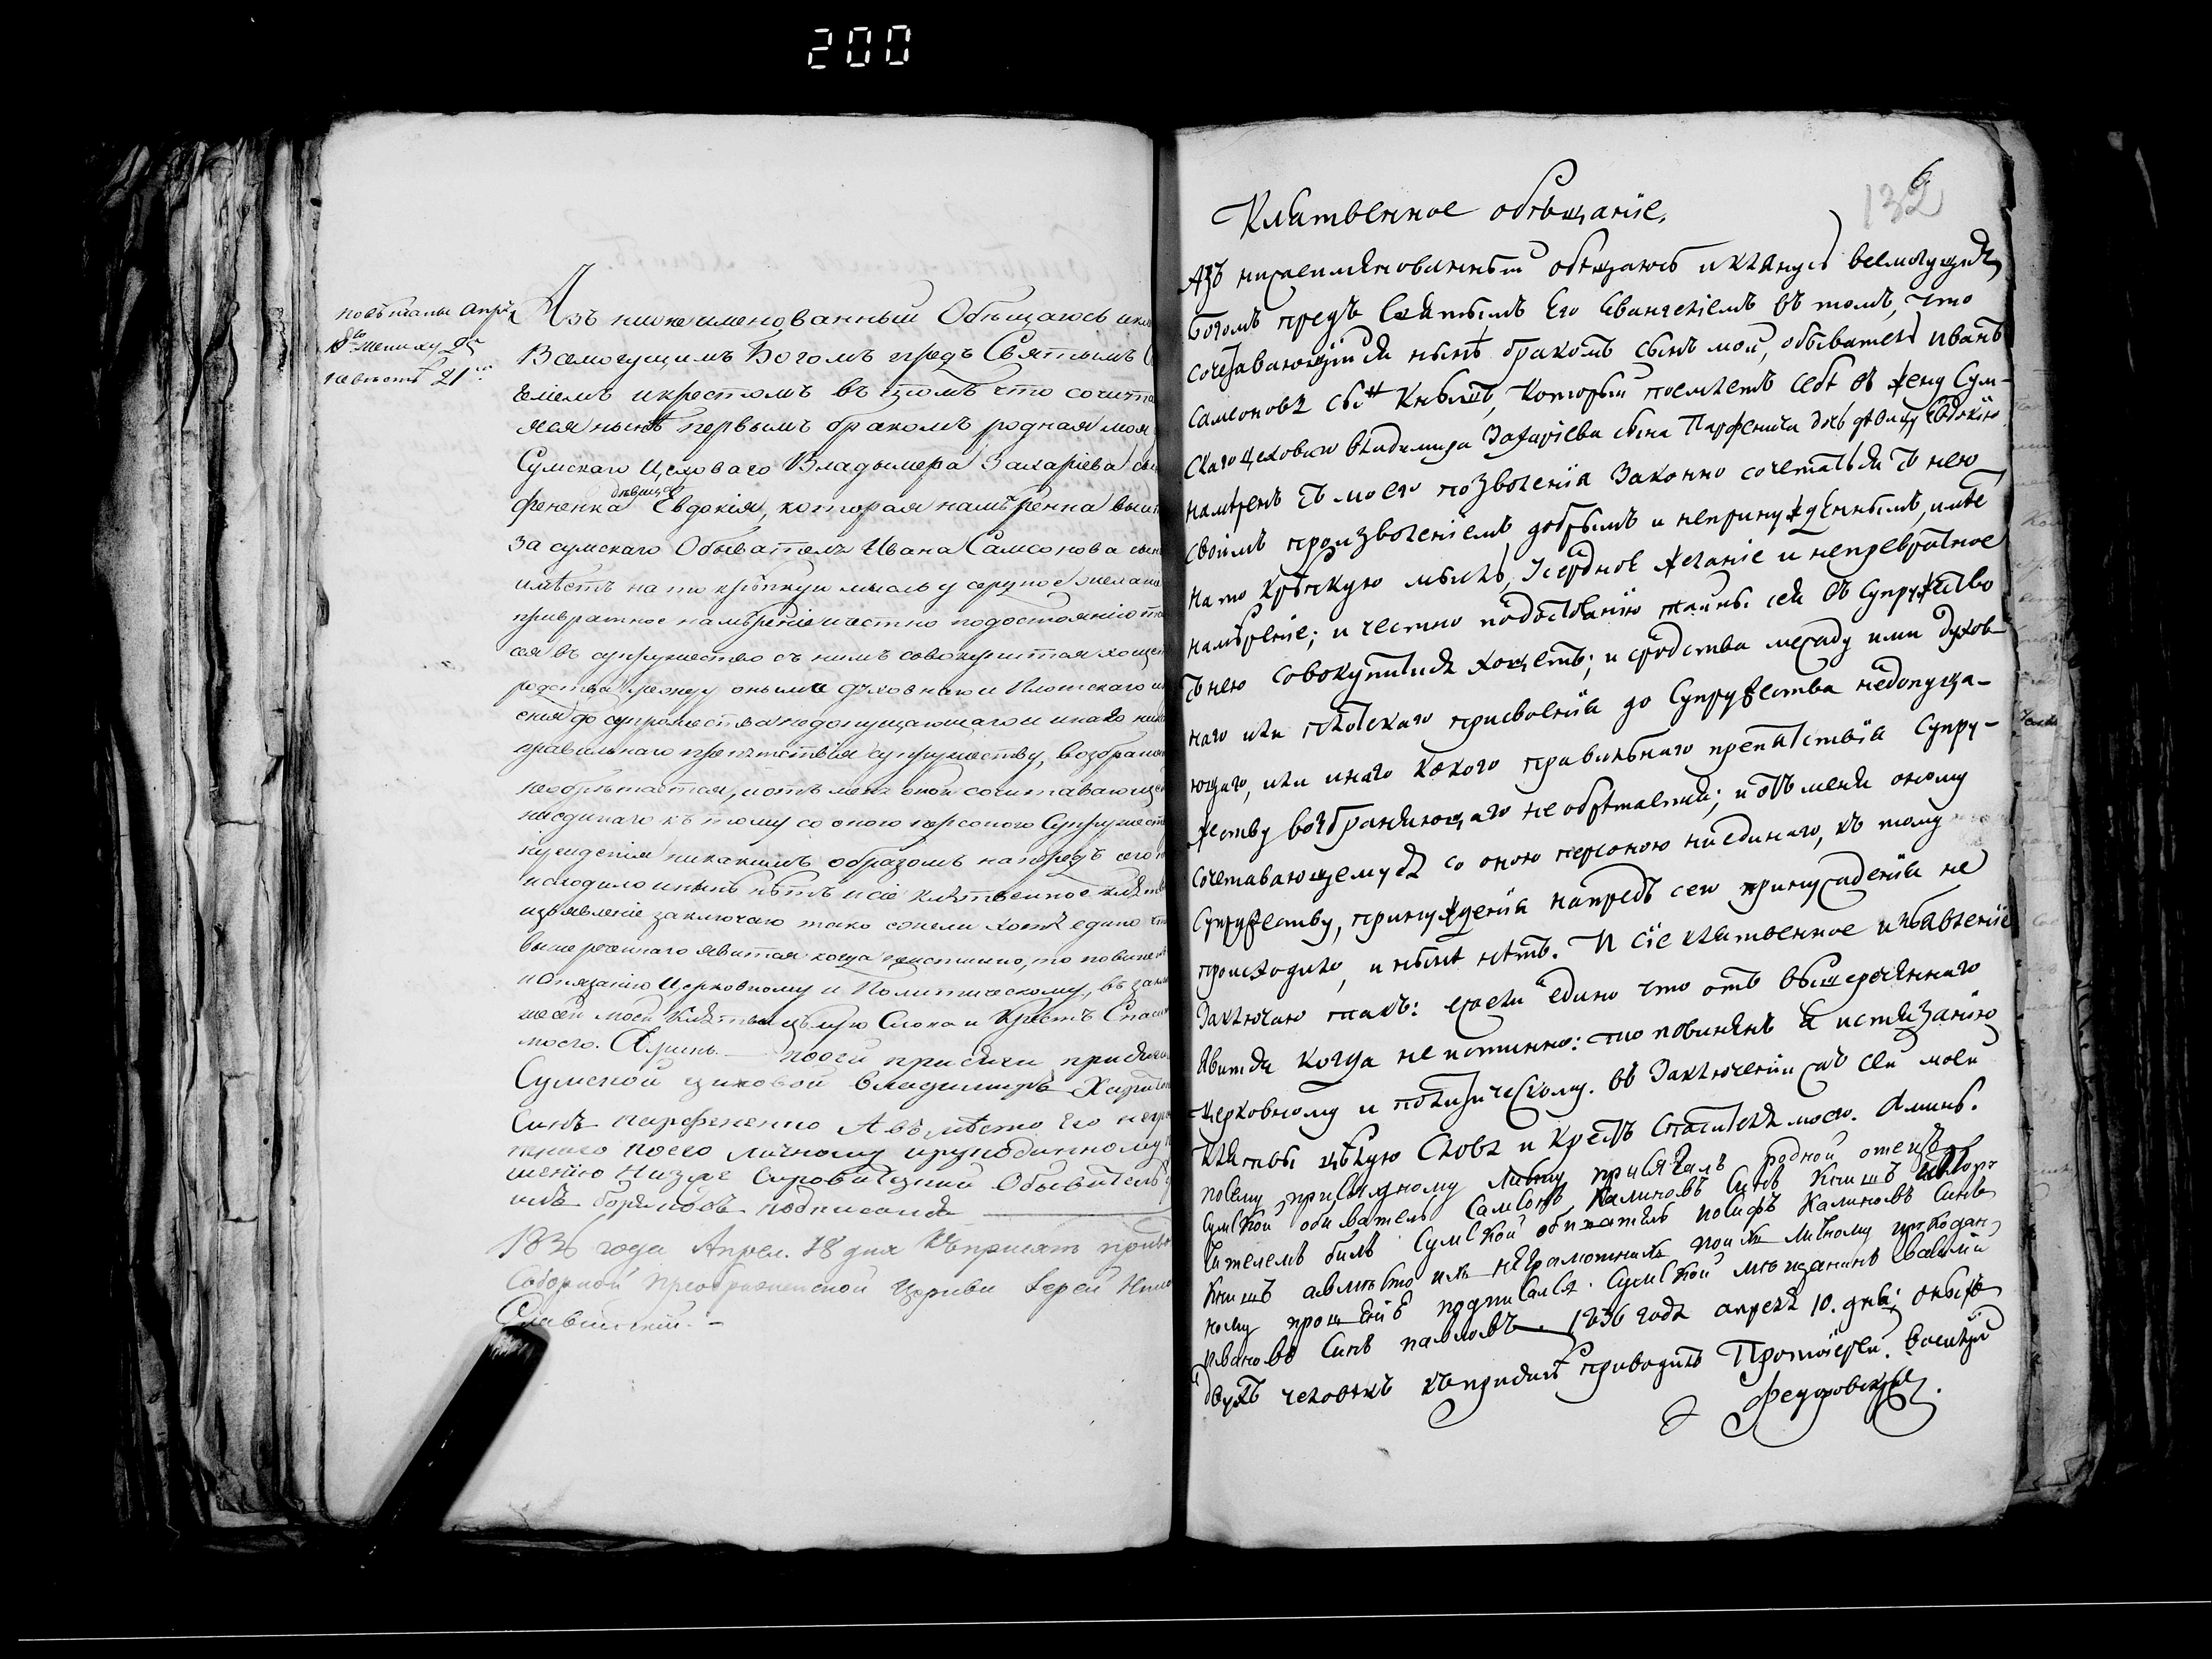 200
повѣнчаны Апрѣля
18го жениху 25
невѣстѣ 21
Азъ нижеименованный Обѣщаюсь и кл
Всемогущимъ Богомъ предъ Святымъ
геліемъ и крестомъ въ томъ что сочита
яся нынѣ первымъ бракомъ родная моя
Сумскаго Цеховаго Владымера Захаріева сы
фененка дѣвица Евдокія, которая намѣренна выйт
за сумскаго Обывателя Ивана Самсонова сына
имѣетъ на то крѣпкую мысль усердное желаніе
превратное намѣреніе и честно подостоянію та
сея въ супружество съ нимъ совокупится хощет
родства между оными духовнаго и Плотскаго и
сенія до супружества недопущающаго и инаго ника
правильнаго препятствія супружеству, возбраня
необрѣтается, и отъ мене оной сочитавающе
ниединаго къ тому со оною персоною Супружест
нужденія никакимъ образомъ напредъ сего н
исходило и нынѣ нѣтъ и сіе клятвенное
изъявленіе заключаю тако ежели хотя едино что
вышереченнаго явится когда неистинно, то повинен
истязанію Церковному и Политическому, въ закл
же сей моей клятвы цѣлую Слова и Крестъ Спаси
моего. Аминь. — посей присяги присягалъ
Сумской цеховой владимиръ Харитон
Синъ парфененко Авъмѣсто Его негра
наго поего личному ирукоданному
шению Низже Сироватский Обывитель
подписался
1836 года Апрел. 18 дня Къприсягѣ приво
Соборной Преображенской Церкви Іерей Нико
Славинский. —
6
132
Клятвенное обѣщаніе,
Азъ нижеимянованный обѣщаюсь и клянусь всемогущимъ
Богомъ предъ Святымъ Его Евангеліемъ въ томъ, что
сочетавающійся нынѣ бракомъ сынъ мой, обыватель иванъ
Самсоновъ сынъ Кнышъ, который поемлетъ себѣ въ жену Сум-
скаго цеховаго Владимира Захаріева сына Парфенича дочь дѣвицу Евдокію
намѣренъ съ моего позволенія Законно сочетаться съ нею
своимъ произволеніемъ добрымъ и непринужденнымъ, имѣе
на то крѣпкую мысль, усердное желаніе и непревратное
намѣреніе; и честно подостоянію тайны сея въ Супружество
съ нею совокупится хощетъ; и сродства между ими духов-
наго или плотскаго присвоенія до Супружества недопуща-
ющаго, или инаго какого правильнаго препятствія Супру-
жеству возбраняющаго не обрѣтается; и отъ меня оному
сочетавающемуся со оною персоною ниединаго, къ тому
Супружеству, принужденія напредъ сего принужденія не
происходило, и нынѣ нѣтъ. И сіе клятвенное изъявленіе
Заключаю такъ: ежели едино что отъ вышереченнаго
Явится когда не истинно: то повиненъ я истязанію
церковному и политическому. въ Заключеніи сей моей
клятвы цѣлую Слова и Крестъ Спасителя моего. Аминь.
посему присяжному листу присягалъ родной отецъ
Сумской обиватель Самсонъ Калиновъ Синъ Книшъ
Сумской обиватель иосифъ Калиновъ Синъ
Книшъ авмѣсто ихъ неграмотнихъ поихъ личному ирукодан
ному прошению подписался Сумской мѣщанинъ василий
Ивановъ Синъ павловъ. 1836 года апреля 10. дня; оныхъ
двухъ человѣкъ къприсягѣ приводилъ Протоіерей Василій
Федоровскій.